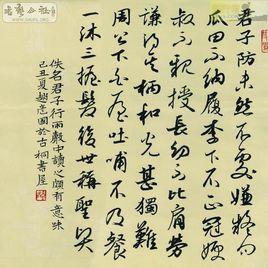 君子防未然不處嫌疑間
瓜田不納履李下不正冠嫂
叔不親授長幼不比肩勞
謙得其柄和光甚獨難
周公下白屋吐哺不及餐
一沐三握髮後世稱聖賢
佚名君子行雨中讀之頗有意味
己丑夏趙彥國於古桐書屋